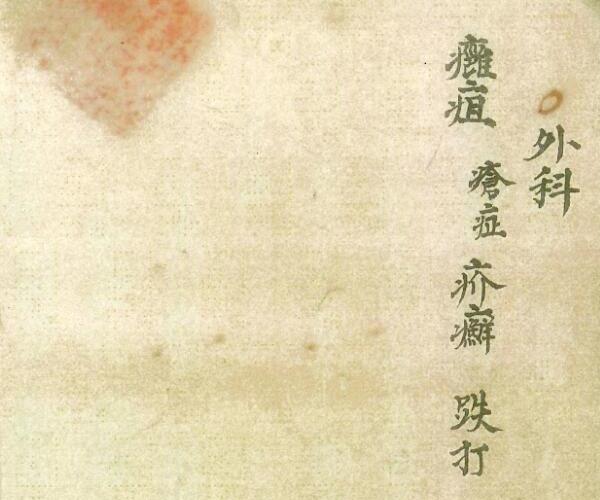 外科
癰疽 瘡症 疥癬 跌打